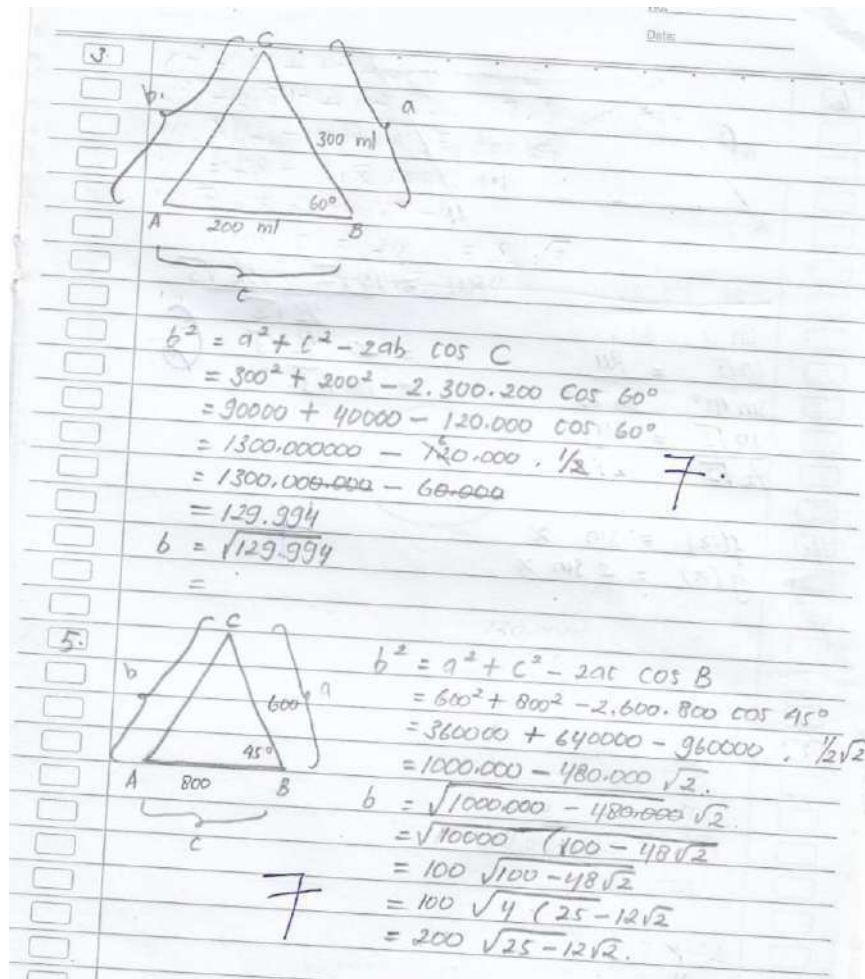 Date:
3.
C
b.
a
300 ml
60°
A
B
200 ml
c
b² = a² + c² - 2ab cos C
= 300² + 200² - 2.300.200 cos 60°
= 90000 + 40000 - 120.000 cos 60°
= 1300.000000 - 120.000 . 1/2
= 1300.000.000 - 60.000
= 129.994
b = √129.994
=
7.
5.
C
b
a
600
45°
A
800
B
c
b² = a² + c² - 2ac cos B
= 600² + 800² - 2.600.800 cos 45°
= 360000 + 640000 - 960000 . 1/2√2
= 1000.000 - 480.000 √2.
b = √1000.000 - 480.000 √2.
= √10000 (100 - 48√2
= 100 √100 - 48√2
= 100 √4 (25 - 12√2
= 200 √25 - 12√2.
7